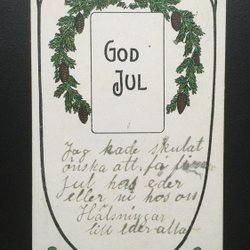 GOD
JUL
Jag hade skulat
önska att få
Jul hos eder
eller ni hos oss
Hälsningar
till eder alla